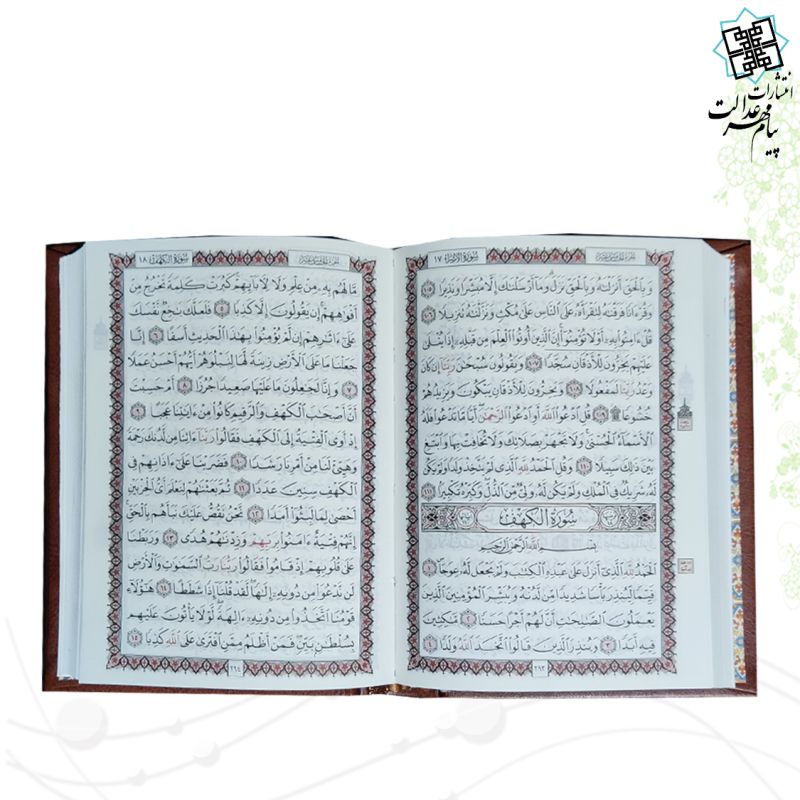 انتشارات
پیام مهر عدالت
سُورَةُ الْإِسْرَاءِ ١٧
وَبِالْحَقِّ أَنزَلْنَٰهُ وَبِالْحَقِّ نَزَلَ وَمَا أَرْسَلْنَٰكَ إِلَّا مُبَشِّرًا وَنَذِيرًا ١٠٥
وَقُرْءَانًا فَرَقْنَٰهُ لِتَقْرَأَهُ عَلَى النَّاسِ عَلَىٰ مُكْثٍ وَنَزَّلْنَٰهُ تَنزِيلًا ١٠٦
قُلْ ءَامِنُوا بِهِ أَوْ لَا تُؤْمِنُوا إِنَّ الَّذِينَ أُوتُوا الْعِلْمَ مِن قَبْلِهِ إِذَا يُتْلَىٰ
عَلَيْهِمْ يَخِرُّونَ لِلْأَذْقَانِ سُجَّدًا ١٠٧ وَيَقُولُونَ سُبْحَٰنَ رَبِّنَا إِن كَانَ
وَعْدُ رَبِّنَا لَمَفْعُولًا ١٠٨ وَيَخِرُّونَ لِلْأَذْقَانِ يَبْكُونَ وَيَزِيدُهُمْ
خُشُوعًا ۩ ١٠٩ قُلِ ادْعُوا اللَّهَ أَوِ ادْعُوا الرَّحْمَٰنَ أَيًّا مَّا تَدْعُوا فَلَهُ
الْأَسْمَاءُ الْحُسْنَىٰ وَلَا تَجْهَرْ بِصَلَاتِكَ وَلَا تُخَافِتْ بِهَا وَابْتَغِ
بَيْنَ ذَٰلِكَ سَبِيلًا ١١٠ وَقُلِ الْحَمْدُ لِلَّهِ الَّذِي لَمْ يَتَّخِذْ وَلَدًا وَلَمْ يَكُن
لَّهُ شَرِيكٌ فِي الْمُلْكِ وَلَمْ يَكُن لَّهُ وَلِيٌّ مِّنَ الذُّلِّ وَكَبِّرْهُ تَكْبِيرًا ١١١
سُورَةُ الْكَهْفِ
بِسْمِ اللَّهِ الرَّحْمَٰنِ الرَّحِيمِ
الْحَمْدُ لِلَّهِ الَّذِي أَنزَلَ عَلَىٰ عَبْدِهِ الْكِتَٰبَ وَلَمْ يَجْعَل لَّهُ عِوَجًا ١
قَيِّمًا لِّيُنذِرَ بَأْسًا شَدِيدًا مِّن لَّدُنْهُ وَيُبَشِّرَ الْمُؤْمِنِينَ الَّذِينَ
يَعْمَلُونَ الصَّٰلِحَٰتِ أَنَّ لَهُمْ أَجْرًا حَسَنًا ٢ مَّٰكِثِينَ
فِيهِ أَبَدًا ٣ وَيُنذِرَ الَّذِينَ قَالُوا اتَّخَذَ اللَّهُ وَلَدًا ٤
٢٩٣
سُورَةُ الْكَهْفِ ١٨
مَّا لَهُم بِهِ مِنْ عِلْمٍ وَلَا لِآبَائِهِمْ كَبُرَتْ كَلِمَةً تَخْرُجُ مِنْ
أَفْوَٰهِهِمْ إِن يَقُولُونَ إِلَّا كَذِبًا ٥ فَلَعَلَّكَ بَٰخِعٌ نَّفْسَكَ
عَلَىٰ ءَاثَٰرِهِمْ إِن لَّمْ يُؤْمِنُوا بِهَٰذَا الْحَدِيثِ أَسَفًا ٦ إِنَّا
جَعَلْنَا مَا عَلَى الْأَرْضِ زِينَةً لَّهَا لِنَبْلُوَهُمْ أَيُّهُمْ أَحْسَنُ عَمَلًا
٧ وَإِنَّا لَجَٰعِلُونَ مَا عَلَيْهَا صَعِيدًا جُرُزًا ٨ أَمْ حَسِبْتَ
أَنَّ أَصْحَٰبَ الْكَهْفِ وَالرَّقِيمِ كَانُوا مِنْ ءَايَٰتِنَا عَجَبًا ٩
إِذْ أَوَى الْفِتْيَةُ إِلَى الْكَهْفِ فَقَالُوا رَبَّنَا ءَاتِنَا مِن لَّدُنكَ رَحْمَةً
وَهَيِّئْ لَنَا مِنْ أَمْرِنَا رَشَدًا ١٠ فَضَرَبْنَا عَلَىٰ ءَاذَانِهِمْ فِي
الْكَهْفِ سِنِينَ عَدَدًا ١١ ثُمَّ بَعَثْنَٰهُمْ لِنَعْلَمَ أَيُّ الْحِزْبَيْنِ
أَحْصَىٰ لِمَا لَبِثُوا أَمَدًا ١٢ نَّحْنُ نَقُصُّ عَلَيْكَ نَبَأَهُم بِالْحَقِّ
إِنَّهُمْ فِتْيَةٌ ءَامَنُوا بِرَبِّهِمْ وَزِدْنَٰهُمْ هُدًى ١٣ وَرَبَطْنَا
عَلَىٰ قُلُوبِهِمْ إِذْ قَامُوا فَقَالُوا رَبُّنَا رَبُّ السَّمَٰوَٰتِ وَالْأَرْضِ
لَن نَّدْعُوَا مِن دُونِهِ إِلَٰهًا لَّقَدْ قُلْنَا إِذًا شَطَطًا ١٤ هَٰؤُلَاءِ
قَوْمُنَا اتَّخَذُوا مِن دُونِهِ ءَالِهَةً لَّوْلَا يَأْتُونَ عَلَيْهِم
بِسُلْطَٰنٍ بَيِّنٍ فَمَنْ أَظْلَمُ مِمَّنِ افْتَرَىٰ عَلَى اللَّهِ كَذِبًا ١٥
٢٩٤